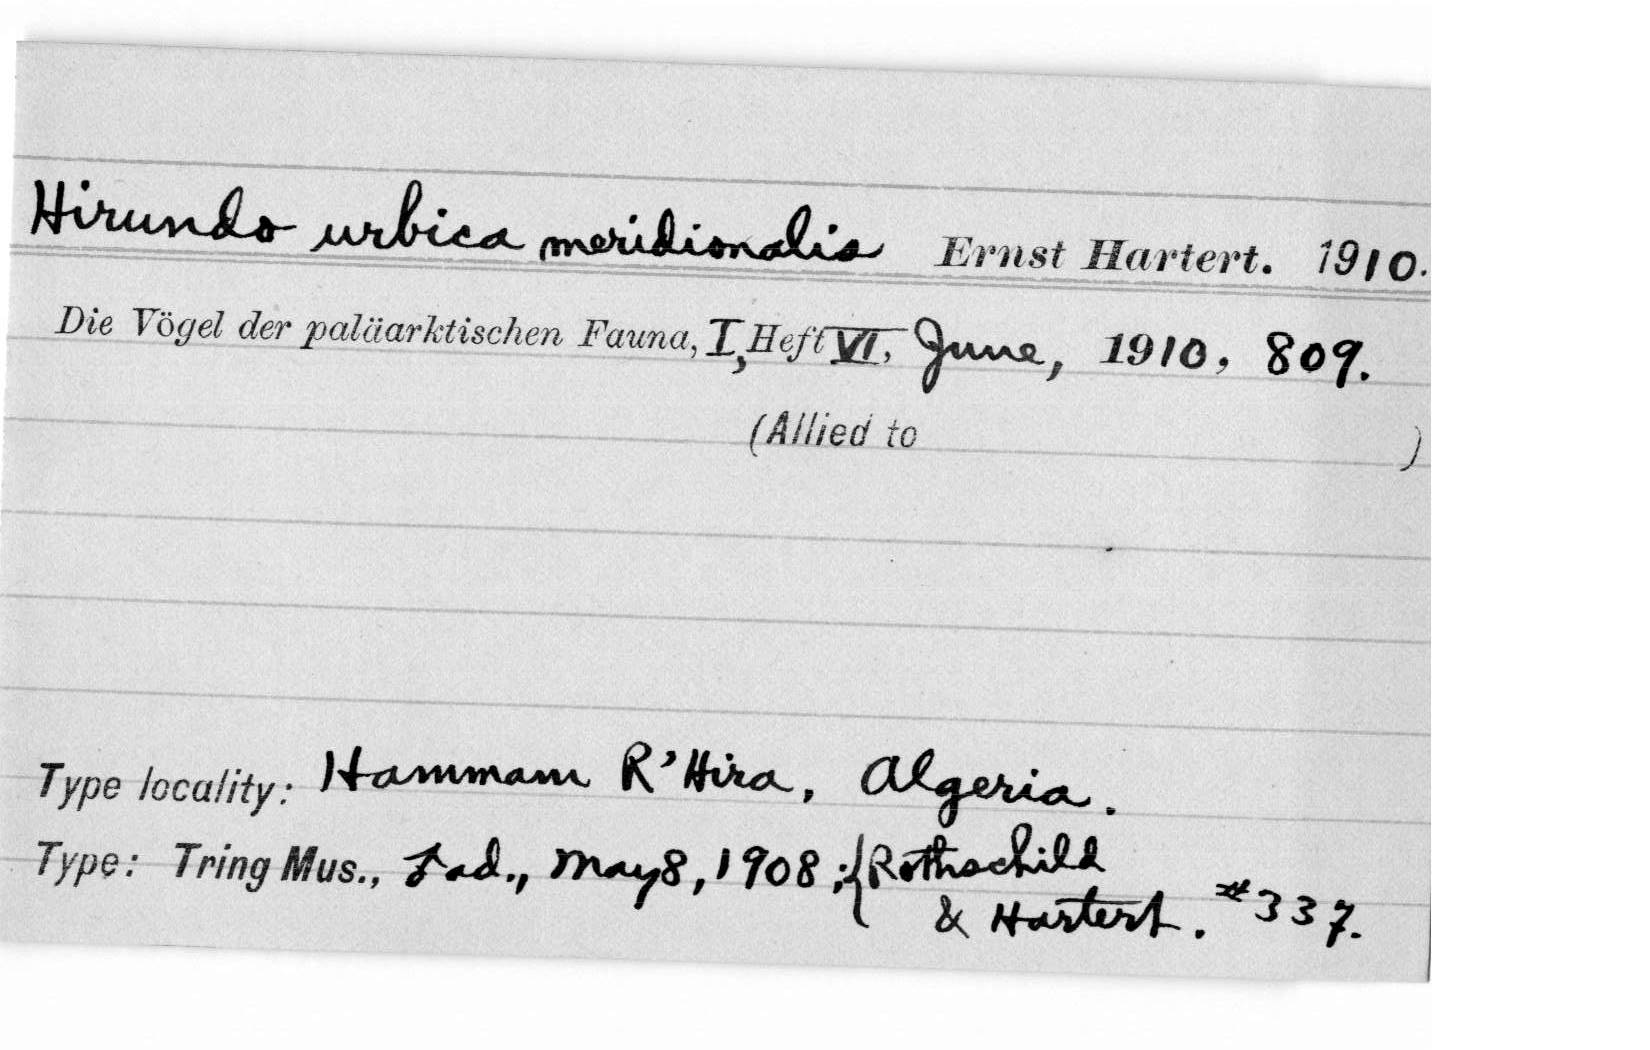 Hirundo urbica meridionalis Ernst Hartert. 1910.
Die Vögel der paläarktischen Fauna, I, Heft VI, June, 1910, 809.
(Allied to )
Type locality: Hammam R'Hira, Algeria.
Type: Tring Mus., ad., May 8, 1908; {Rothschild
& Hartert. #337.